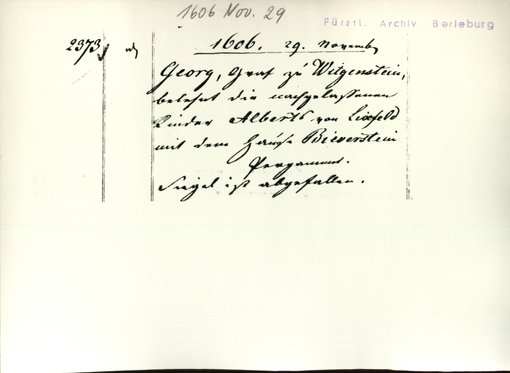 1606 Nov. 29
Fürstl. Archiv Berleburg
2373
1606. 29. Novemb.
Georg, Graf zu Witgenstein,
belehnt die nachgelassenen
Kinder Alberts von Lixfeld
mit dem Hause Bieverstein
Pergament.
Siegel ist abgefallen.